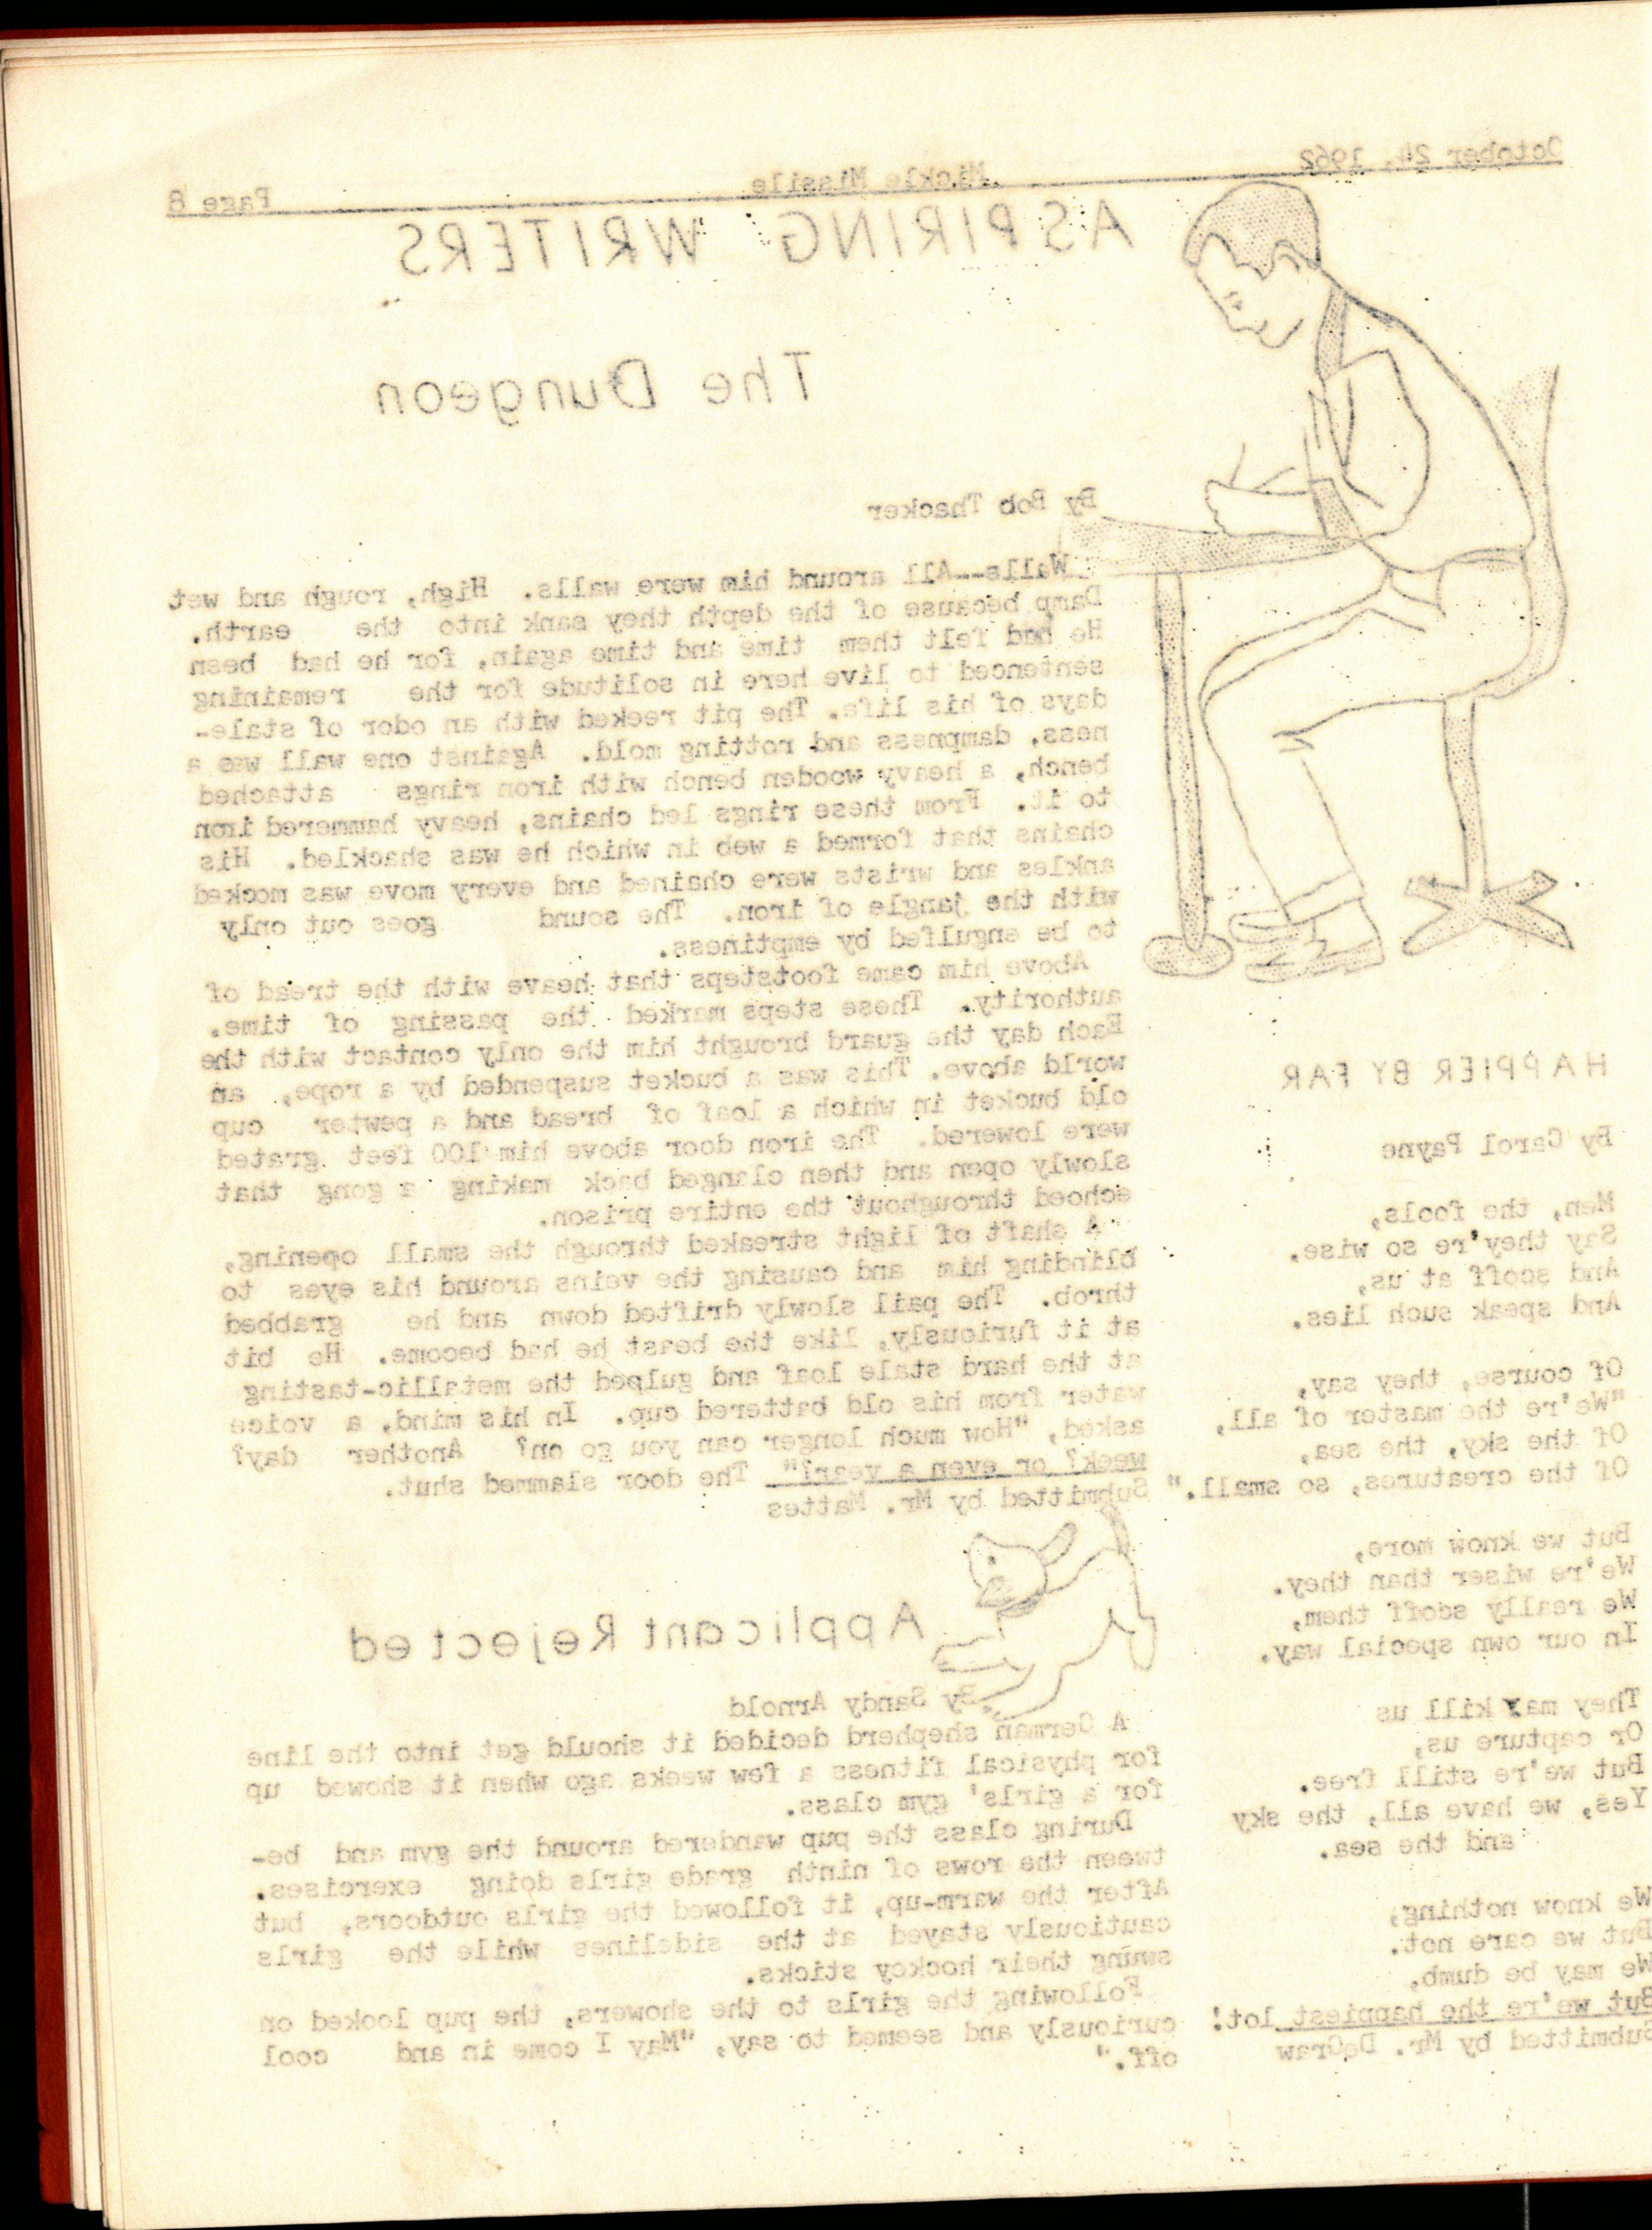 October 24, 1962 Mickle Missile Page 8
ASPIRING WRITERS
HAPPIER BY FAR
By Carol Payne
Men, the fools,
Say they're so wise.
And scoff at us,
And speak such lies.
Of course, they say,
"We're the master of all,
Of the sky, the sea,
Of the creatures, so small."
But we know more,
We're wiser than they.
We really scoff them,
In our own special way.
They may kill us
Or capture us,
But we're still free.
Yes, we have all, the sky
and the sea.
We know nothing,
But we care not.
We may be dumb,
But we're the happiest lot!
Submitted by Mr. DeGraw
The Dungeon
By Bob Thacker
Walls--All around him were walls. High, rough and wet
Damp because of the depth they sank into the earth.
He had felt them time and time again, for he had been
sentenced to live here in solitude for the remaining
days of his life. The pit reeked with an odor of stale-
ness, dampness and rotting mold. Against one wall was a
bench, a heavy wooden bench with iron rings attached
to it. From these rings led chains, heavy hammered iron
chains that formed a web in which he was shackled. His
ankles and wrists were chained and every move was mocked
with the jangle of iron. The sound goes out only
to be engulfed by emptiness.
Above him came footsteps that heave with the tread of
authority. These steps marked the passing of time.
Each day the guard brought him the only contact with the
world above. This was a bucket suspended by a rope, an
old bucket in which a loaf of bread and a pewter cup
were lowered. The iron door above him 100 feet grated
slowly open and then clanged back making a gong that
echoed throughout the entire prison.
A shaft of light streaked through the small opening,
blinding him and causing the veins around his eyes to
throb. The pail slowly drifted down and he grabbed
at it furiously, like the beast he had become. He bit
at the hard stale loaf and gulped the metallic-tasting
water from his old battered cup. In his mind, a voice
asked, "How much longer can you go on? Another day?
week? or even a year?" The door slammed shut.
Submitted by Mr. Mattes
Applicant Rejected
By Sandy Arnold
A German shepherd decided it should get into the line
for physical fitness a few weeks ago when it showed up
for a girls' gym class.
During class the pup wandered around the gym and be-
tween the rows of ninth grade girls doing exercises.
After the warm-up, it followed the girls outdoors, but
cautiously stayed at the sidelines while the girls
swung their hockey sticks.
Following the girls to the showers, the pup looked on
curiously and seemed to say, "May I come in and cool
off."